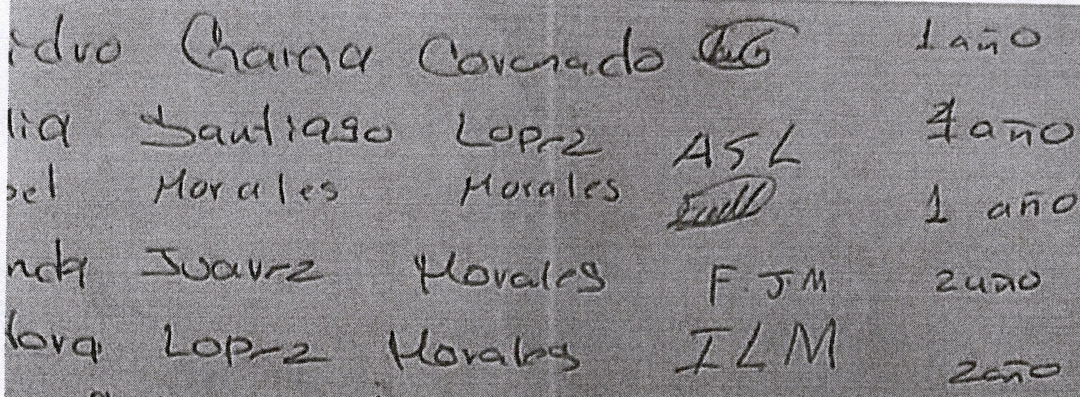 idro Chama Coronado 1 año
lia Santiago Lopez ASL 1 año
bel Morales Morales 1 año
nda Juarez Morales F.JM 2 año
lora Lopez Morales ILM 2 año